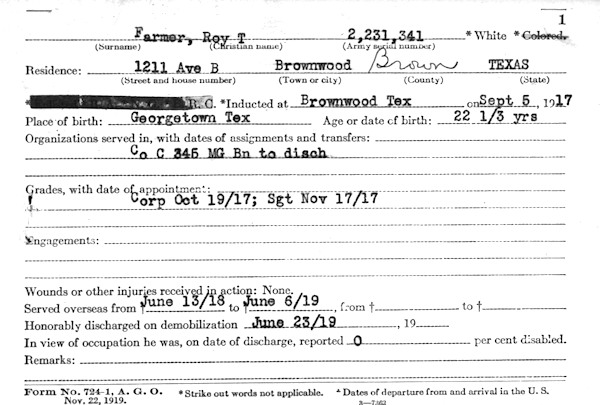 1
Farmer, Roy T 2,231,341 *White *Colored.
(Surname) (Christian name) (Army serial number)
Residence: 1211 Ave B Brownwood Brown TEXAS
(Street and house number) (Town or city) (County) (State)
* R. C. *Inducted at Brownwood Tex on Sept 5, 1917
Place of birth: Georgetown Tex Age or date of birth: 22 1/3 yrs
Organizations served in, with dates of assignments and transfers:
Co C 345 MG Bn to disch
Grades, with date of appointment:
Corp Oct 19/17; Sgt Nov 17/17
Engagements:
Wounds or other injuries received in action: None.
Served overseas from † June 13/18 to † June 6/19, from † to †
Honorably discharged on demobilization June 23/19, 19
In view of occupation he was, on date of discharge, reported 0 per cent disabled.
Remarks:
Form No. 724-1, A. G. O. *Strike out words not applicable. Dates of departure from and arrival in the U. S.
Nov. 22, 1919. 3—7362